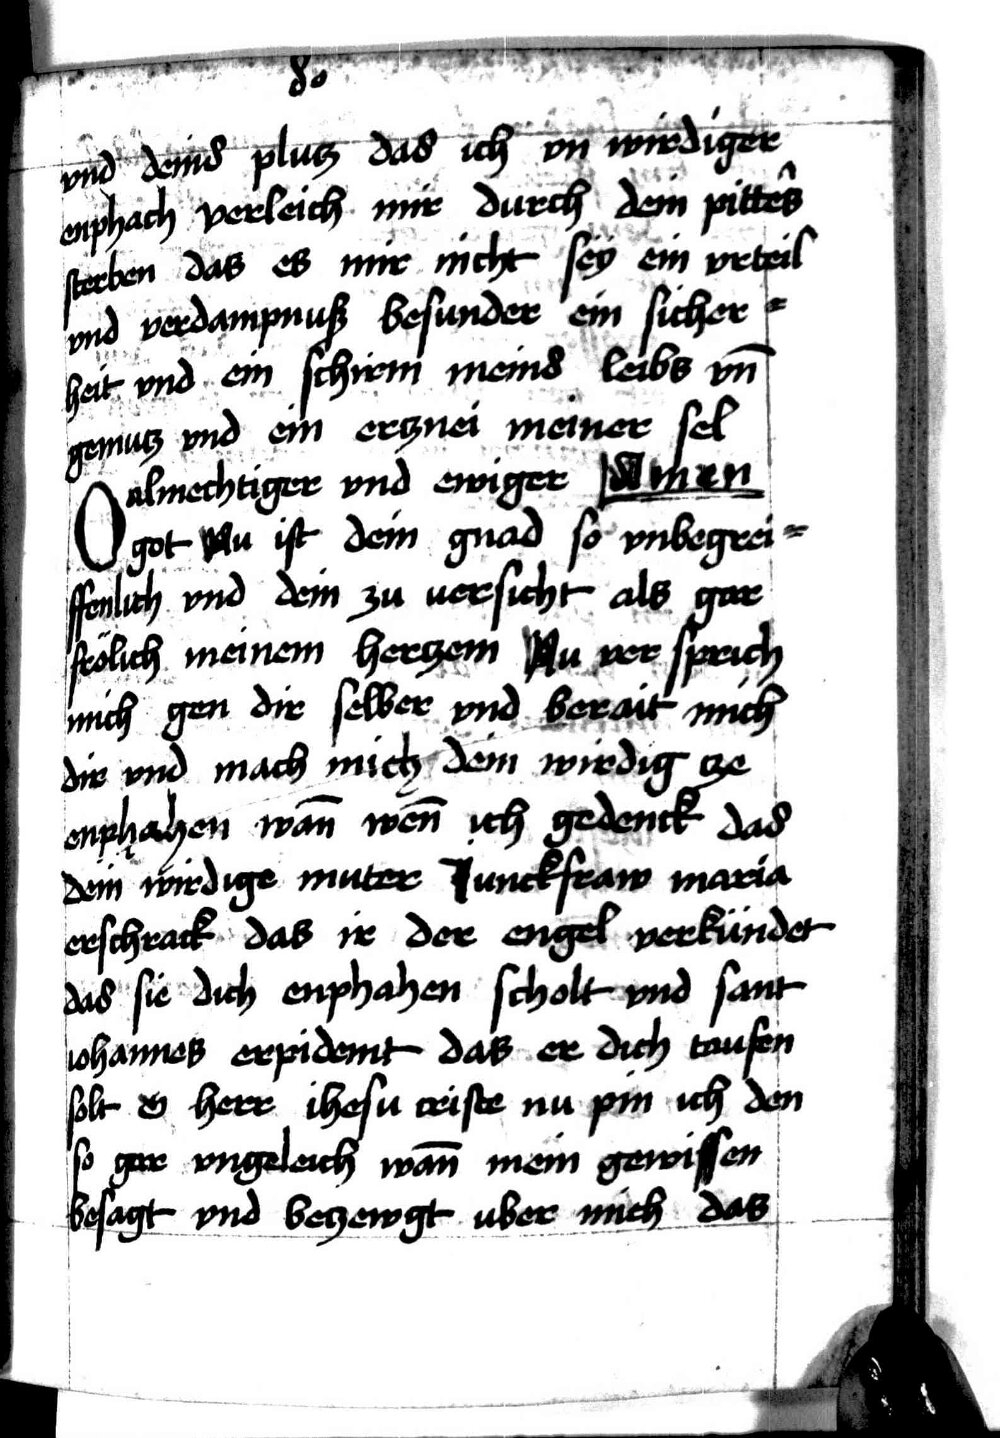 80
vnd deins plutz das ich vn wirdiger
enphach verleich mir durch dein pitters
sterben das es mir nicht sey ein vrteil
vnd verdampnuß besunder ein sicher=
heit vnd ein schirm meins leibs vn̄
gemutz vnd ein ertznei meiner sel
almechtiger vnd ewiger Amen
O got Nu ist dein gnad so vnbegrei=
ffenlich vnd dein zu uersicht als gar
frölich meinem hertzem Nu ver sprich
mich gen dir selber vnd berait mich
dir vnd mach mich dein wirdig tze
enphahen wan̄ wen̄ ich gedenck das
dein wirdige muter Junckfraw maria
erschrack das ir der engel verkündet
das sie dich enphahen scholt vnd sant
iohannes erpidemt das er dich taufen
solt O herr ihesu criste nu pin ich den
so gar vngeleich wan̄ mein gewissen
besagt vnd betzewgt uber mich das